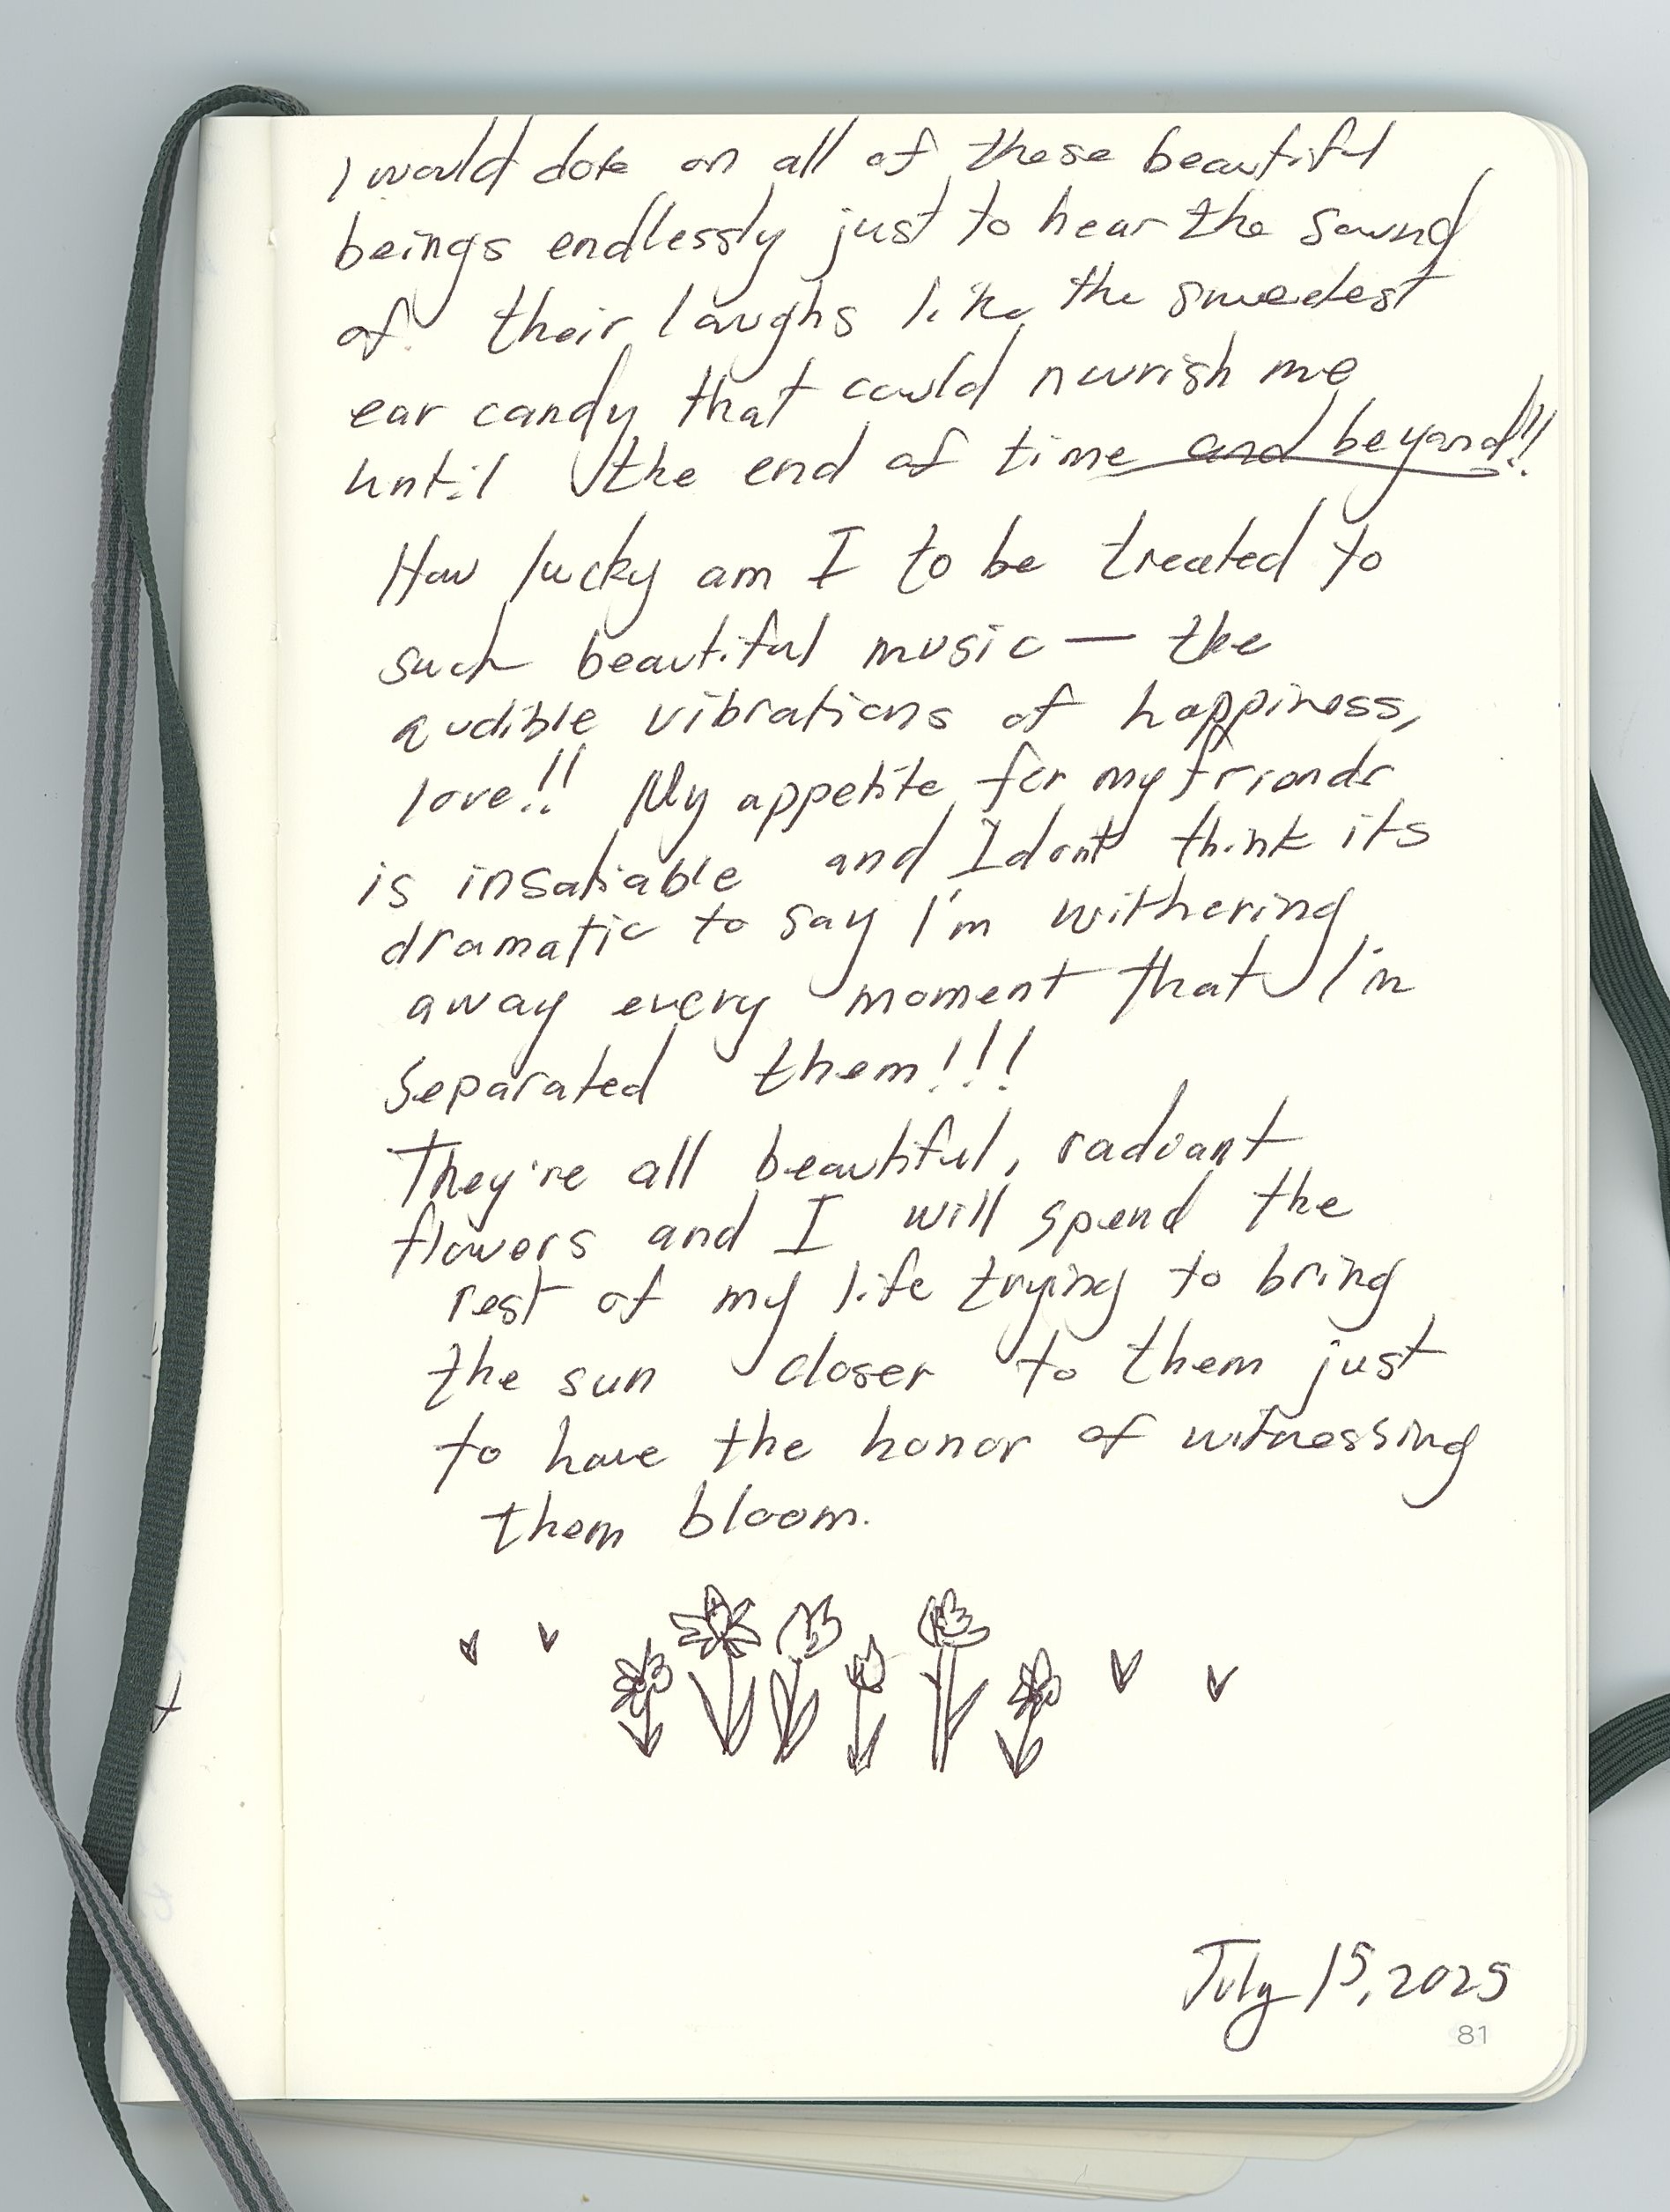 I would dote on all of these beautiful
beings endlessly just to hear the sound
of their laughs like the sweetest
ear candy that could nourish me
until the end of time and beyond!!!
How lucky am I to be treated to
such beautiful music — the
audible vibrations of happiness,
love!! My appetite for my friends
is insatiable and I dont think its
dramatic to say I'm withering
away every moment that I'm
separated them!!!
They're all beautiful, radiant
flowers and I will spend the
rest of my life trying to bring
the sun closer to them just
to have the honor of witnessing
them bloom.
July 15, 2025
81